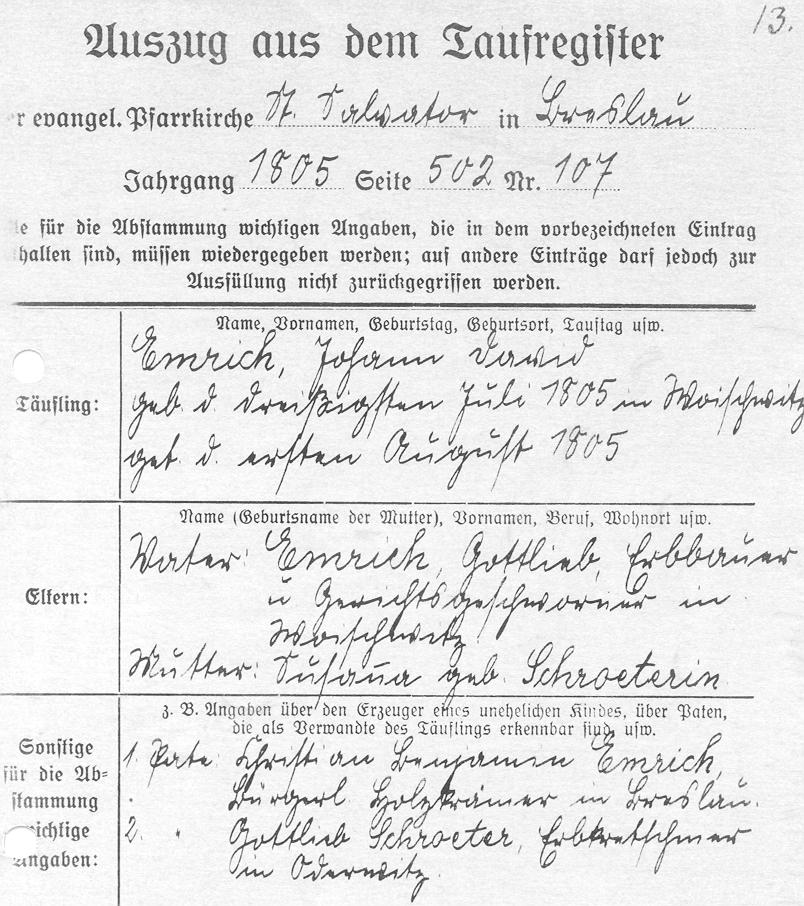 13.
Auszug aus dem Taufregister
r evangel. Pfarrkirche St. Salvator in Breslau
Jahrgang 1805 Seite 502 Nr. 107
le für die Abstammung wichtigen Angaben, die in dem vorbezeichneten Eintrag
halten sind, müssen wiedergegeben werden; auf andere Einträge darf jedoch zur
Ausfüllung nicht zurückgegriffen werden.
Name, Vornamen, Geburtstag, Geburtsort, Tauftag usw.
Täufling:
Emrich, Johann David
geb. d. dreißigsten Juli 1805 in Woischwitz
get. d. ersten August 1805
Name (Geburtsname der Mutter), Vornamen, Beruf, Wohnort usw.
Eltern:
Vater: Emrich, Gottlieb, Erbbauer
u Gerichtsgeschworner in
Woischwitz
Mutter: Susanna geb. Schroeterin
z. B. Angaben über den Erzeuger eines unehelichen Kindes, über Paten,
die als Verwandte des Täuflings erkennbar sind usw.
Sonstige
für die Ab-
stammung
wichtige
Angaben:
1. Pate: Christian Benjamin Emrich,
Bürgerl. Holzkrämer in Breslau.
2. " Gottlieb Schroeter, Erbkretschmer
in Oderwitz.